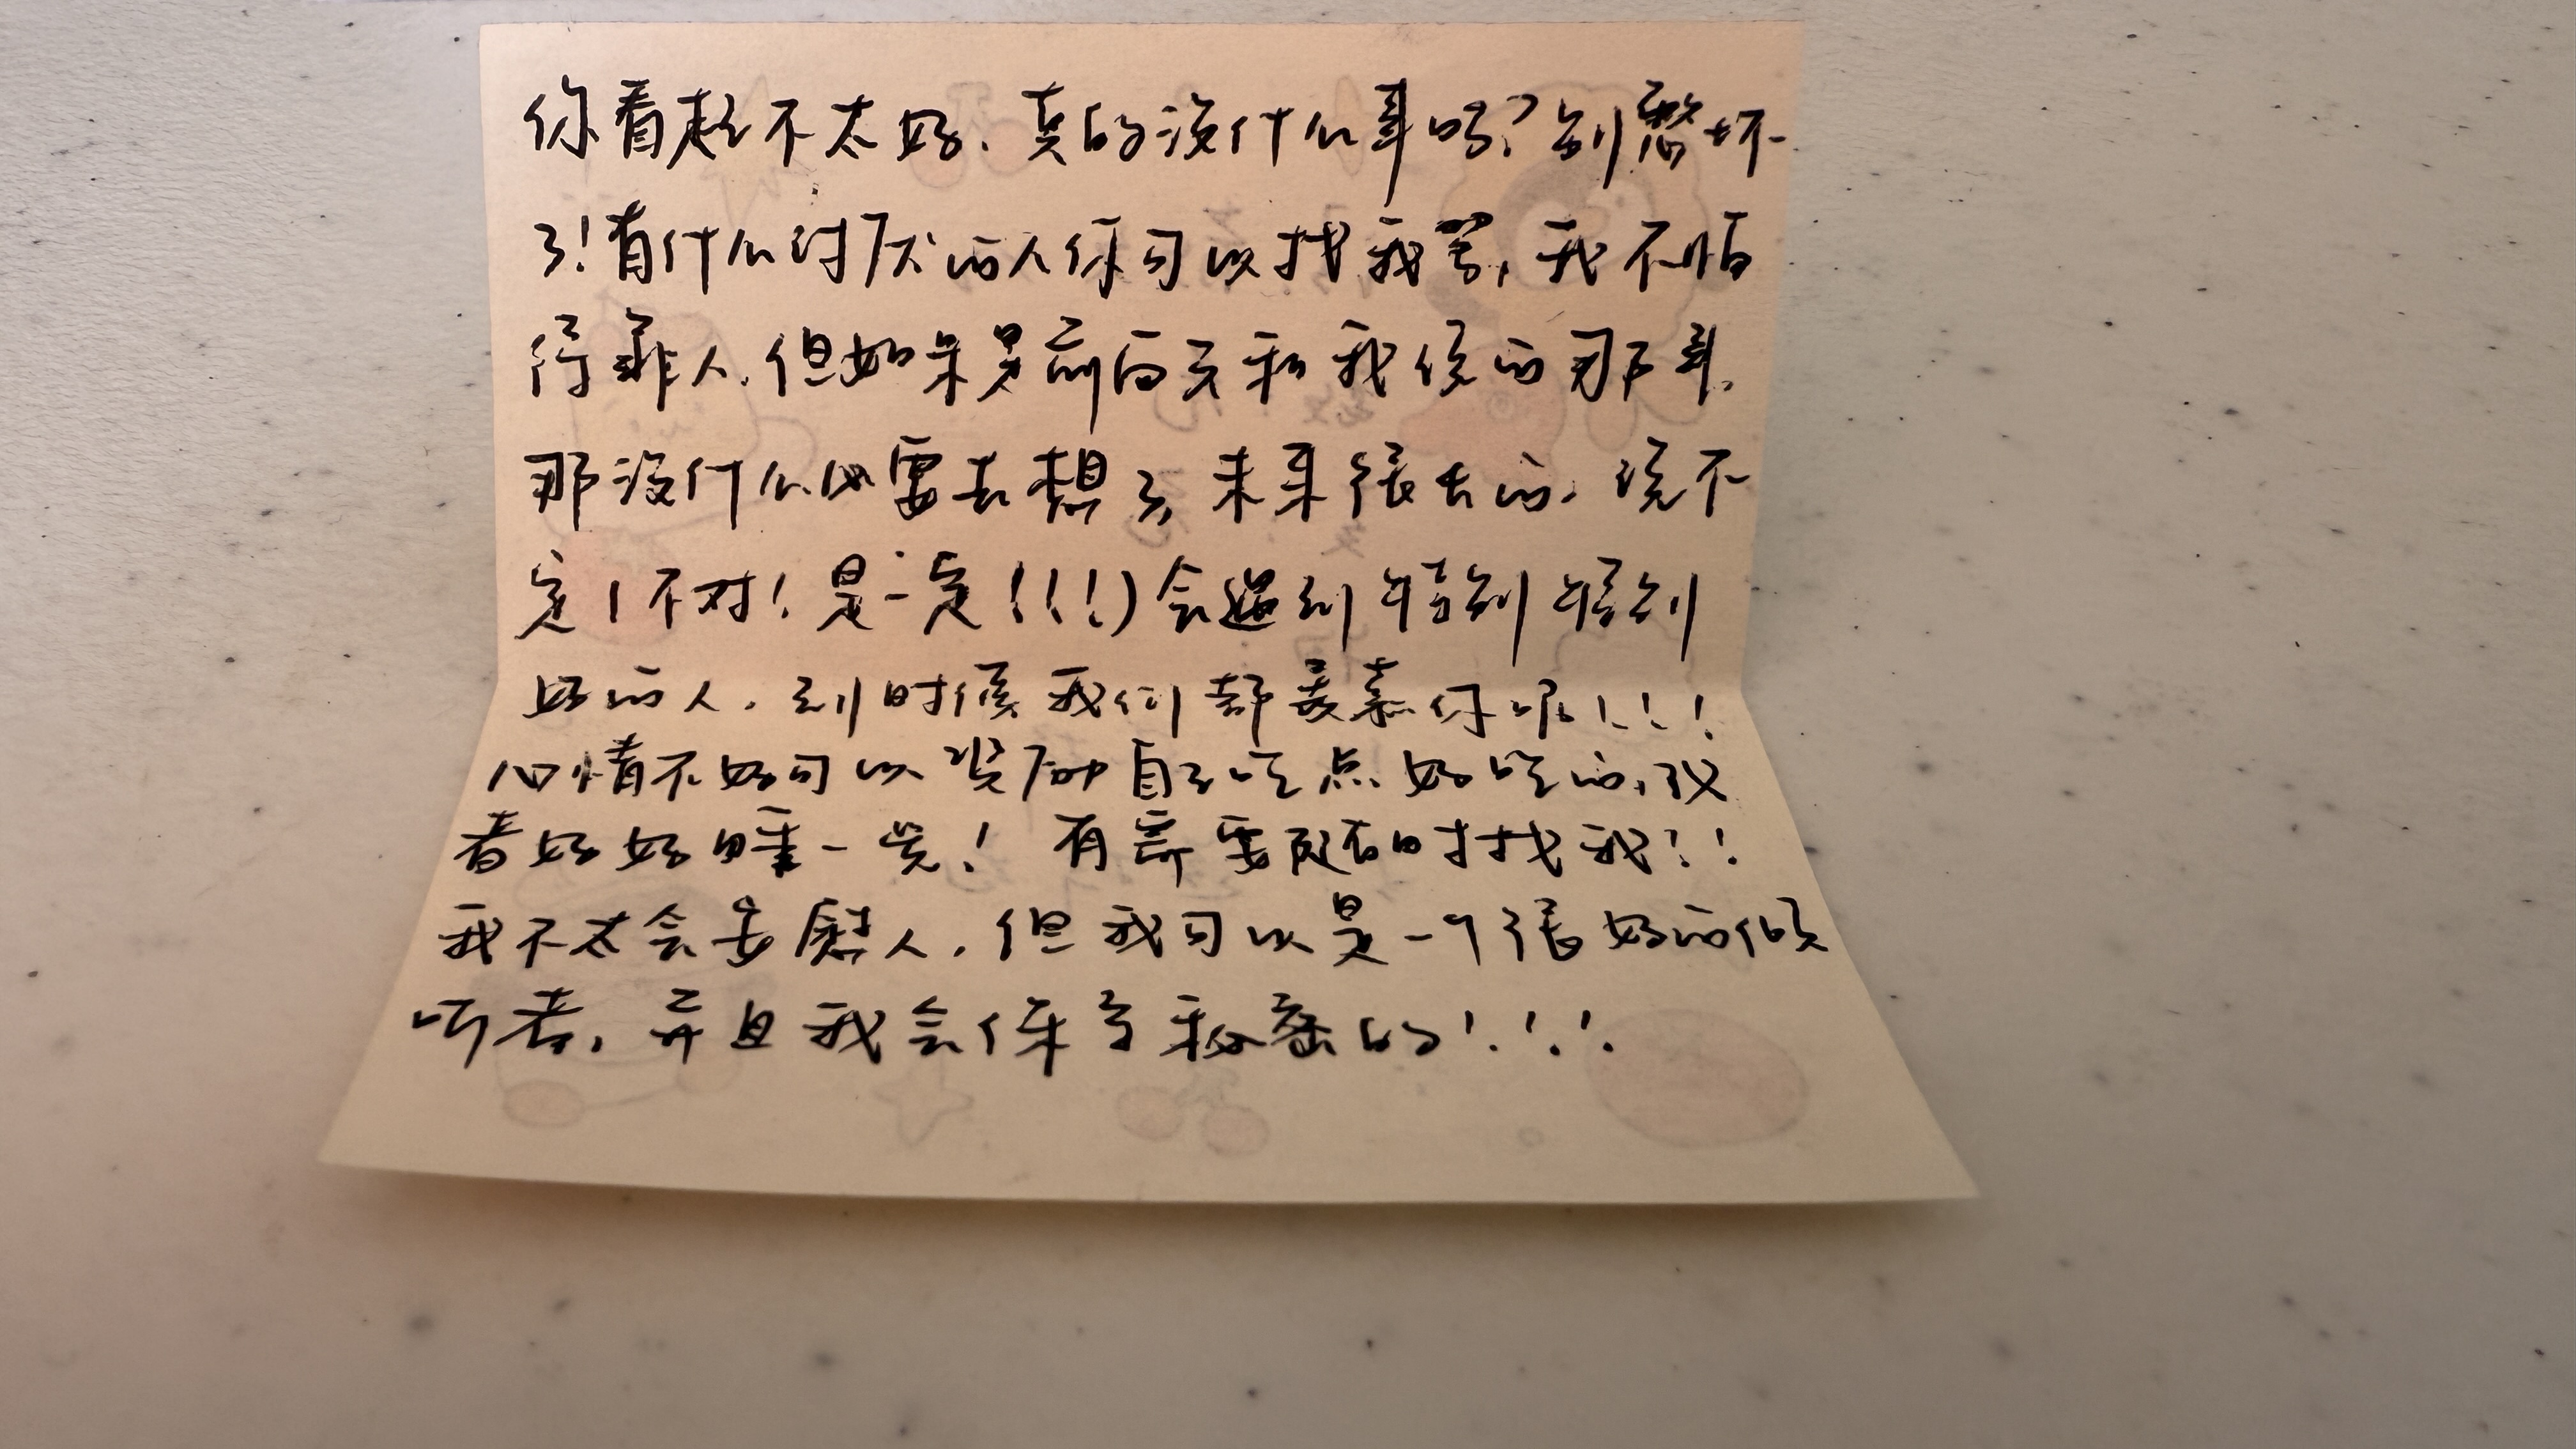 你看起不太好、真的没什么事吗?别憋坏
了!有什么讨厌的人你可以找我骂,我不怕
得罪人.但如果是前两天和我说的那事,
那没什么必要去想了,未来很长的,说不
定(不对!是一定!!!)会遇到特别特别
好的人.到时候我们都羡慕你呢!!!
心情不好可以奖励自己吃点好吃的,或
者好好睡一觉!有需要随时找我!!
我不太会安慰人.但我可以是一个很好的倾
听者,并且我会保守秘密的!!!